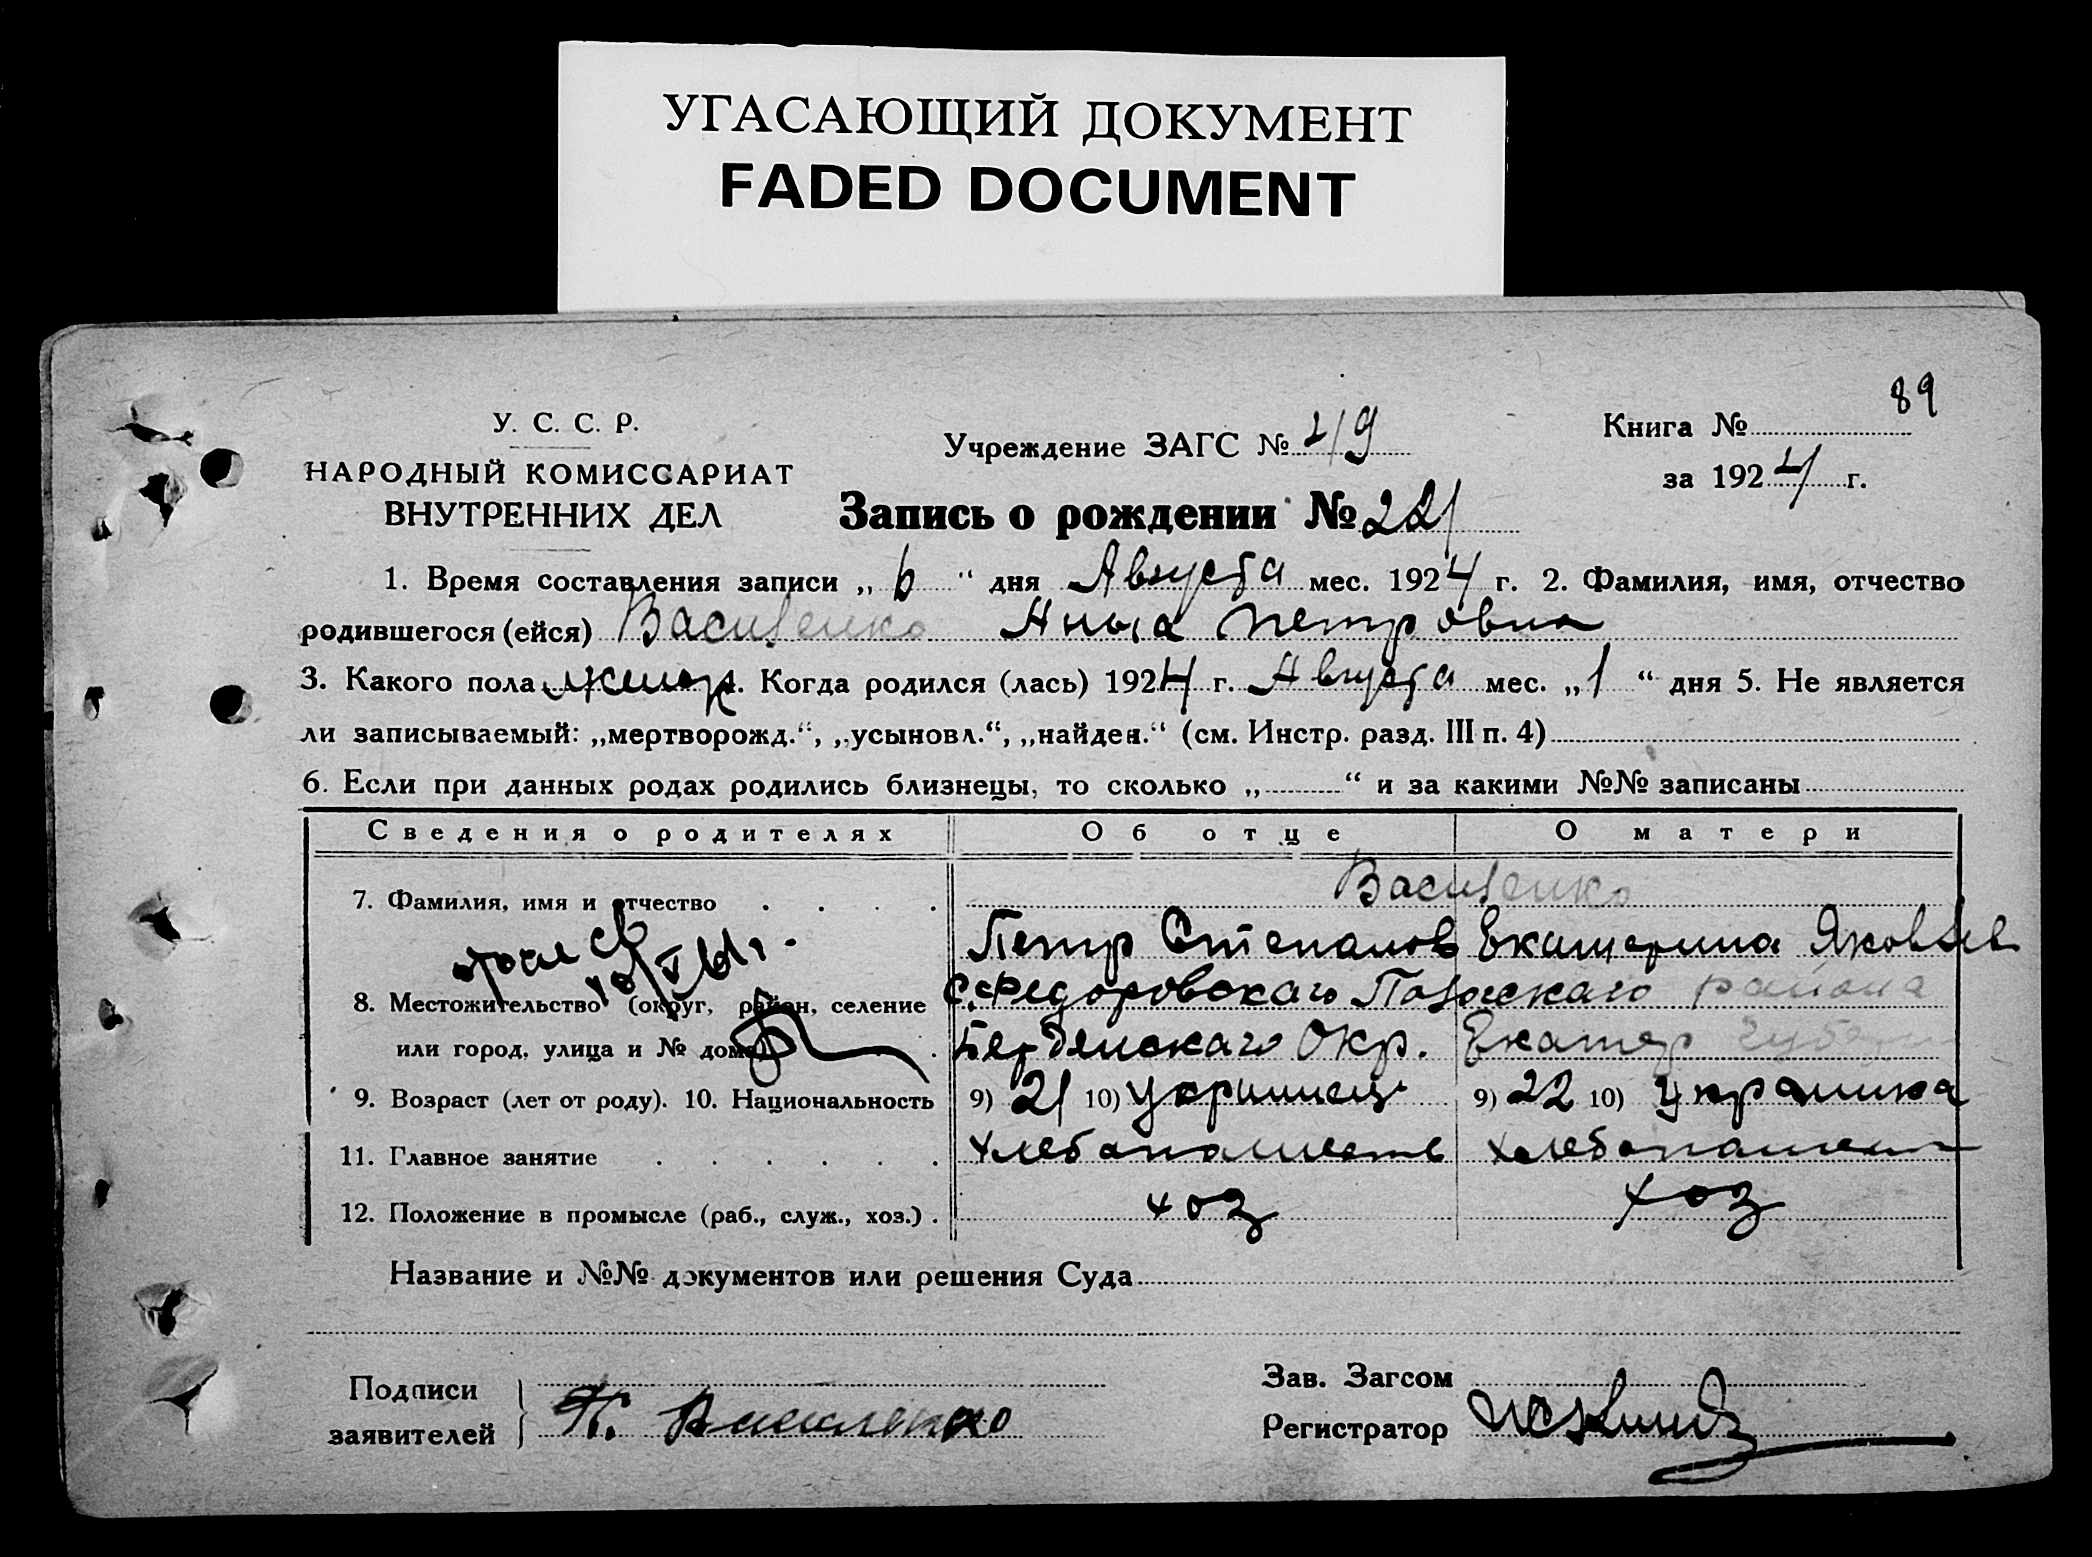 УГАСАЮЩИЙ ДОКУМЕНТ
FADED DOCUMENT
89
У. С. С. Р.
НАРОДНЫЙ КОМИССАРИАТ
ВНУТРЕННИХ ДЕЛ
Учреждение ЗАГС № 219
Книга №
за 1924 г.
Запись о рождении № 221
1. Время составления записи „ 6 “ дня Августа мес. 1924 г. 2. Фамилия, имя, отчество
родившегося (ейся) Василенко Анна Петровна
3. Какого пола женск 4. Когда родился (лась) 1924 г. Августа мес. „ 1 “ дня 5. Не является
ли записываемый: „мертворожд.“, „усыновл.“, „найден.“ (см. Инстр. разд. III п. 4)
6. Если при данных родах родились близнецы, то сколько „ “ и за какими №№ записаны
Сведения о родителях Об отце О матери
Василенко
7. Фамилия, имя и отчество
Петр Степанов Екатерина Яковлев
8. Местожительство (округ, район, селение С. Федоровского района
или город, улица и № дома) Бердянскаго Окр. Екатер губер
9. Возраст (лет от роду). 10. Национальность 9) 21 10) украинец 9) 22 10) украинка
11. Главное занятие хлебопашеств хлебопашест
12. Положение в промысле (раб., служ., хоз.) хоз хоз
Название и №№ документов или решения Суда
Подписи
заявителей } П. Василенко
Зав. Загсом
Регистратор